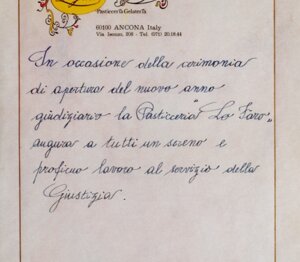 Pasticceria Gelateria
60100 ANCONA Italy
Via Isonzo, 208 - Tel. (071) 20.18.44
In occasione della cerimonia
di apertura del nuovo anno
giudiziario la Pasticceria "Lo Faro„
augura a tutti un sereno e
proficuo lavoro al servizio della
Giustizia.